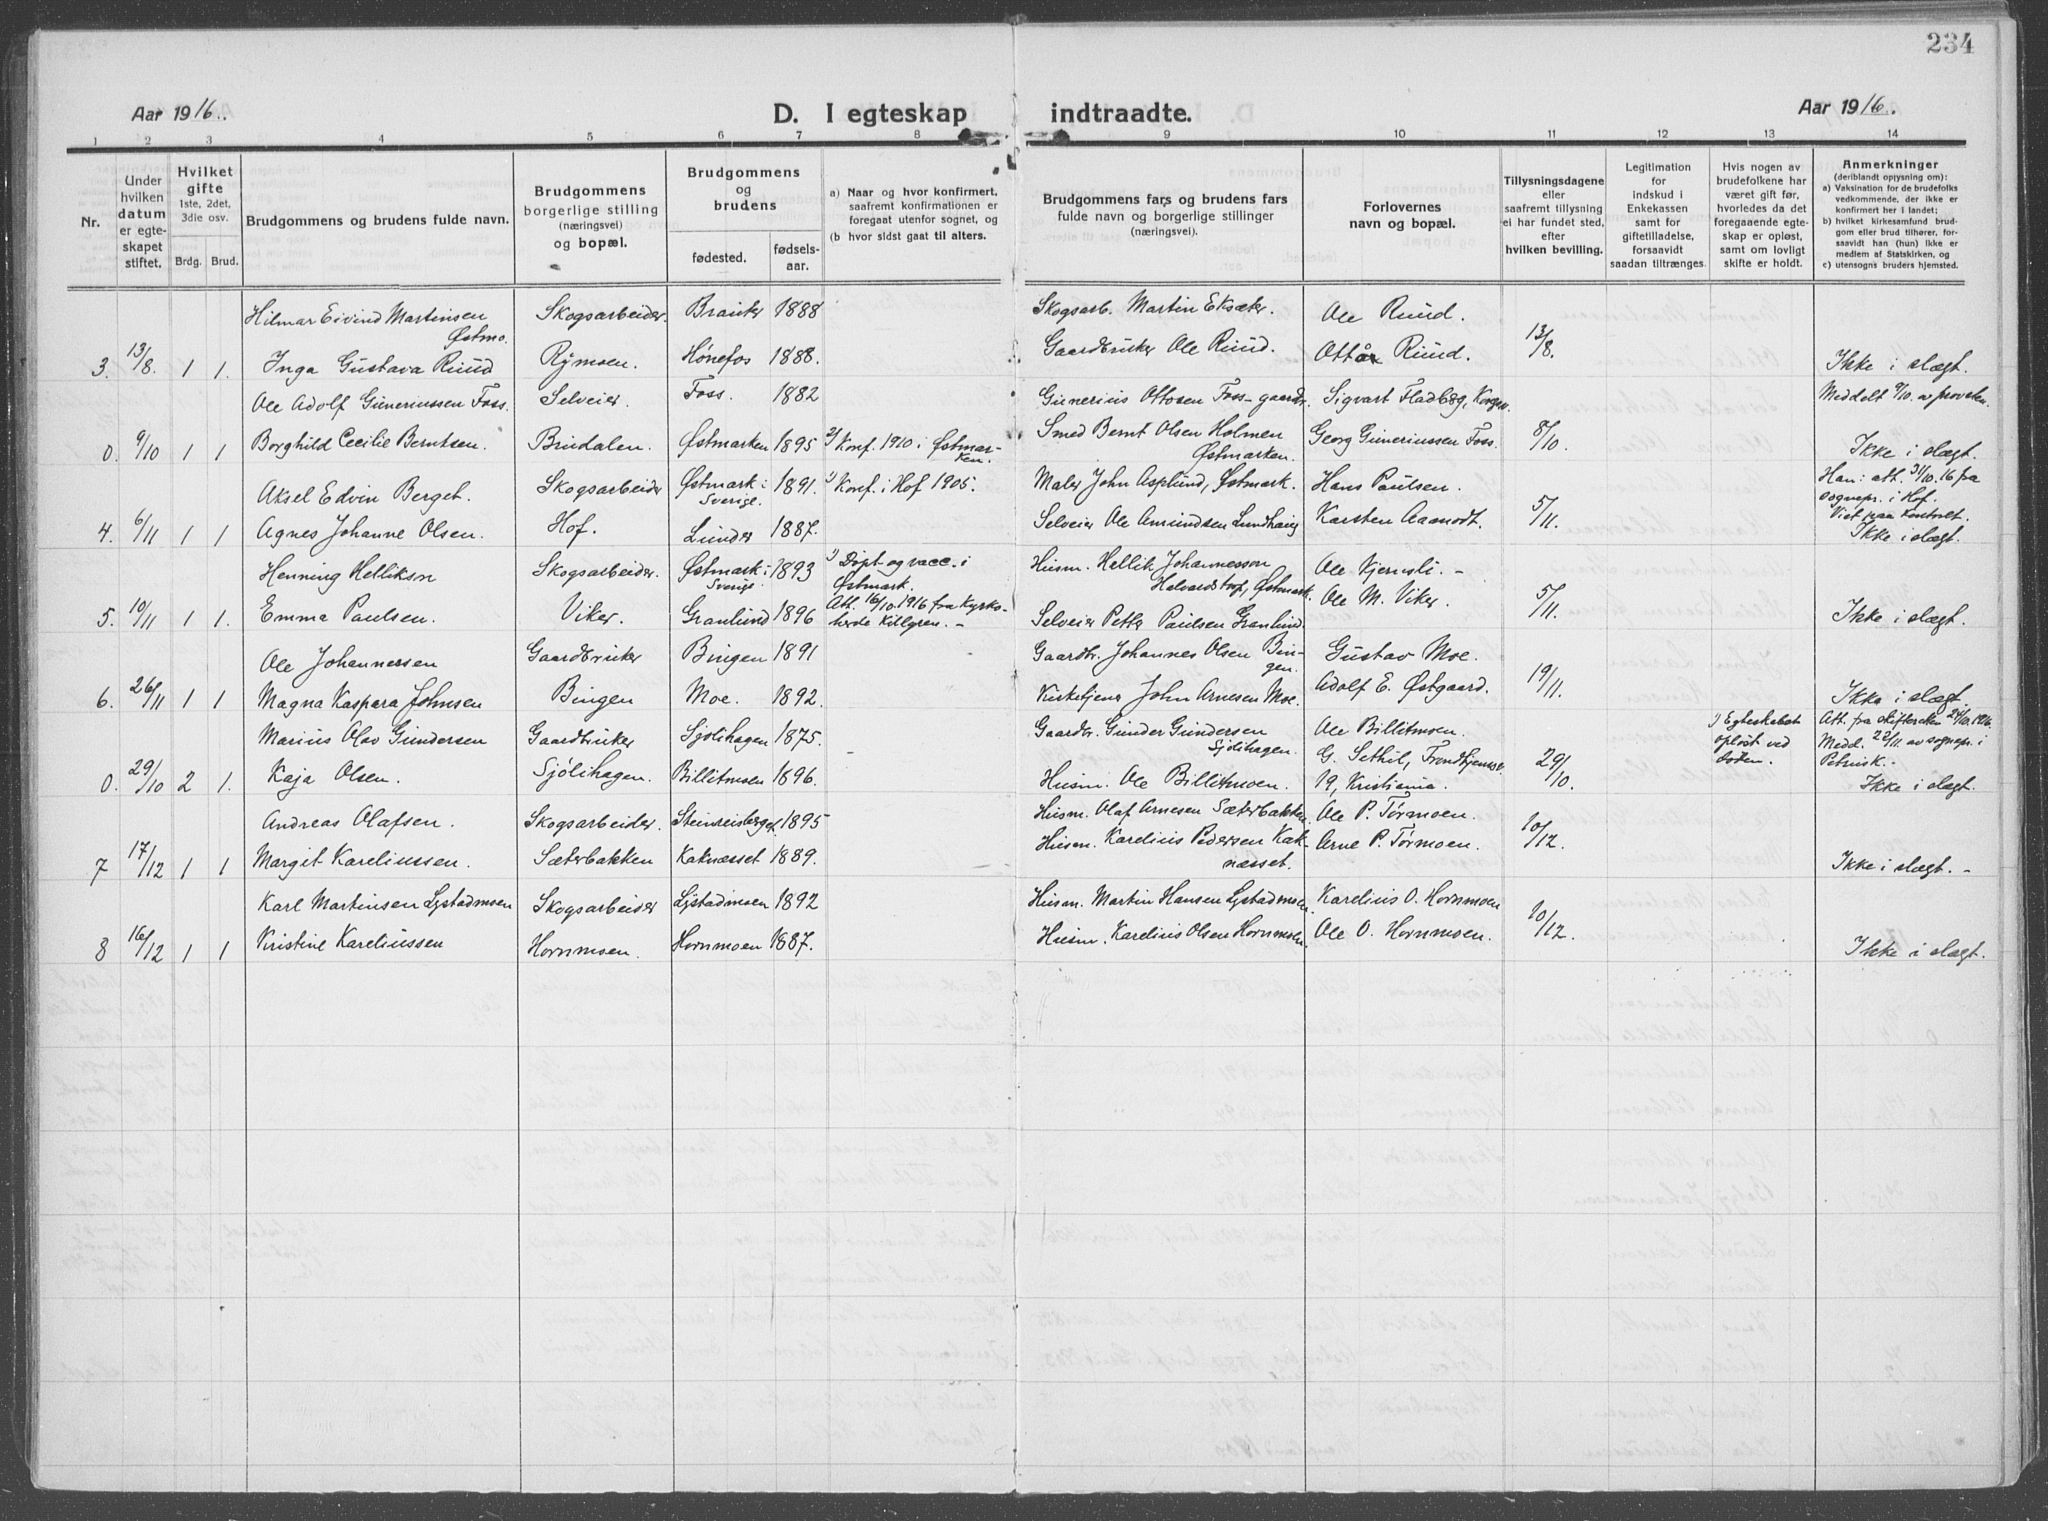 234
Aar 1916.
D. I egteskap indtraadte.
Aar 1916.
1 2 3 4 5 6 7 8 9 10 11 12 13 14
Nr.
Under hvilken datum er egteskapet stiftet.
Hvilket gifte 1ste, 2det, 3die osv.
Brdg. Brud.
Brudgommens og brudens fulde navn.
Brudgommens borgerlige stilling (næringsvei) og bopæl.
Brudgommens og brudens
fødested.
fødsels-aar.
a) Naar og hvor konfirmert, saafremt konfirmationen er foregaat utenfor sognet, og
(b hvor sidst gaat til alters.
Brudgommens fars og brudens fars fulde navn og borgerlige stillinger (næringsvei).
Forlovernes navn og bopæl.
Tillysningsdagene eller saafremt tillysning ei har fundet sted, efter hvilken bevilling.
Legitimation for indskud i Enkekassen samt for giftetilladelse, forsaavidt saadan tiltrænges.
Hvis nogen av brudefolkene har været gift før, hvorledes da det foregaaende egteskap er opløst, samt om lovligt skifte er holdt.
Anmerkninger
(deriblandt opjysning om):
a) Vaksination for de brudefolks vedkommende, der ikke er konfirmert her i landet;
b) hvilket kirkesamfund brudgom eller brud tilhører, forsaavidt han (hun) ikke er medlem af Statskirken, og
c) utensogns bruders hjemsted.
Hilmar Eivind Martinsen Østmo. Skogsarbeider. 1888 Skogsarb. Martin Eksæter. Ole Ruud.
3. 13/8. 1 1. Inga Gustava Ruud Rymoen. Hønefos 1888. Gaardbruker Ole Ruud. Ottar Ruud. 13/8. Ikke i slægt.
Ole Adolf Guneriussen Foss. Selveier. Foss. 1882 Gunerius Ottosen Foss - gaardbr. Sigvart Fladbæg, Meddelt 9/10. av provsten.
0. 9/10 1 1 Borghild Cecilie Berntsen. Brudalen. Østmarken 1895 2) Konf. 1910 i Østmarken. Smed Bernt Olsen Holmen Østmarken. Georg Guneriussen Foss. 8/10. Ikke i slægt.
Aksel Edvin Berget. Skogsarbeider Østmark i Sverige. 1891. 1) Konf. i Hof 1905. Maler John Asplund, Østmark. Hans Paulsen. Han: att. 31/10. 16 fra sognepr. i Hof. Viet paa kontoret.
4. 6/11 1 1 Agnes Johanne Olsen. Hof. Lunder 1887. Selveier Ole Amundsen Lundhaug Karsten Aamodt. 5/11. Ikke i slægt.
Henning Helliksen Skogsarbeider. Østmark i Sverige 1893 1) Døpt og vacc. i Østmark. Husm. Hellik Johannesson Halvardstorp, Østmark. Ole Kjernsli. -
5. 10/11 1 1. Emma Paulsen. Viker. Granlund 1896 Att. 16/10. 1916 fra Kyrkoherde Killgren. - Selveier Petter Paulsen Granlund. Ole M. Viker. 5/11. Ikke i slægt.
Ole Johannessen Gaardbruker Bingen 1891 Gaardbr. Johannes Olsen Bingen. Gustav Moe.
6. 26/11 1 1 Magna Kaspara Johnsen Bingen Moe. 1892. Kirketjener John Arnesen Moe. Adolf E. Østgaard. 19/11. Ikke i slægt
Marius Olav Gundersen Gaardbruker Sjølihagen 1875. Gaardbr. Gunder Gundersen Sjølihagen. Ole Billitmoen. 1) Egteskabet opløst ved døden. Att. fra skifteretten 24/10. 1916. Medd. 22/11. av sognepr. i
0. 29/10 2 1. Kaja Olsen. Sjølihagen. Billitmoen 1896. Husm. Ole Billitmoen. G. Sethil, Trondhjemsv. 19, Kristiania. 29/10. Ikke i slægt.
Andreas Olafsen. Skogsarbeider. 1895 Husm. Olaf Arnesen Sæterbakken. Ole P. Tørmoen.
7 17/12 1 1 Margit Kareliussen. Sæterbakken Kaknæsset 1889. Husm. Karelius Pedersen Kaknæsset. Arne P. Tørmoen. 10/12. Ikke i slægt. -
Karl Martinsen Lystadmoen Skogsarbeider Lystadmoen 1892 Husm. Martin Hansen Lystadmoen. Karelius O. Hornmoen
8 16/12 1 1 Kristine Kareliussen Hornmoen. Hornmoen 1887. Husm. Karelius Olsen Hornmoen. Ole O. Hornmoen. 10/12. Ikke i slægt.